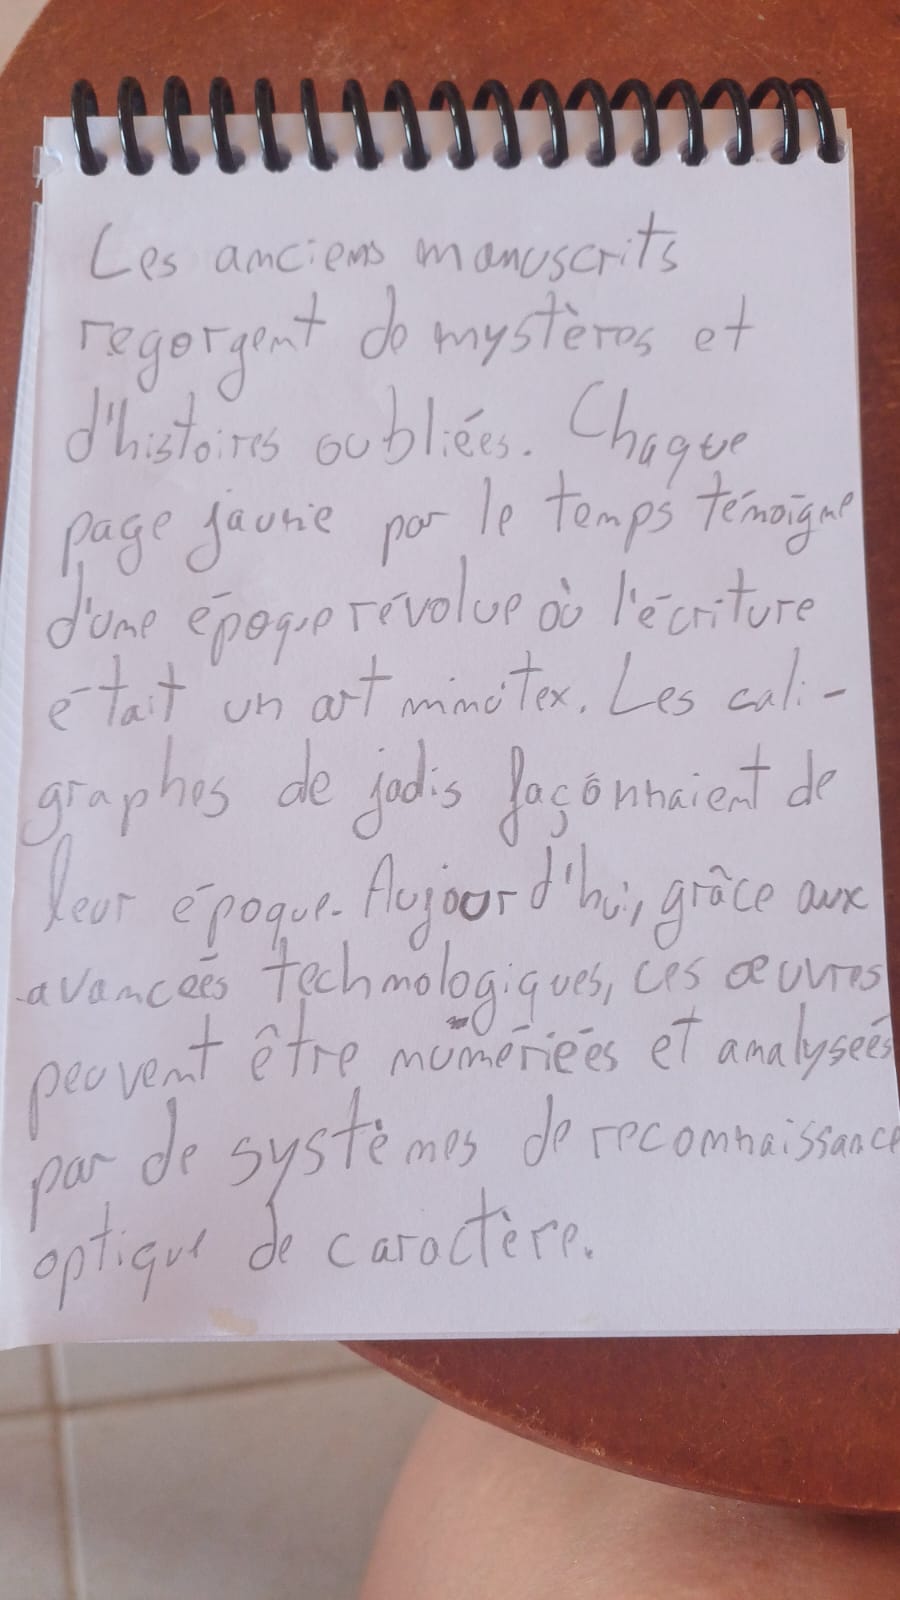 Les anciens manuscrits
regorgent de mystères et
d'histoires oubliées. Chaque
page jaunie par le temps témoigne
d'une époque révolue où l'écriture
était un art minutex. Les cali-
graphes de jadis façonnaient de
leur époque. Aujourd'hui, grâce aux
avancées technologiques, ces œuvres
peuvent être numériées et analysées
par de systèmes de reconnaissance
optique de caractère.